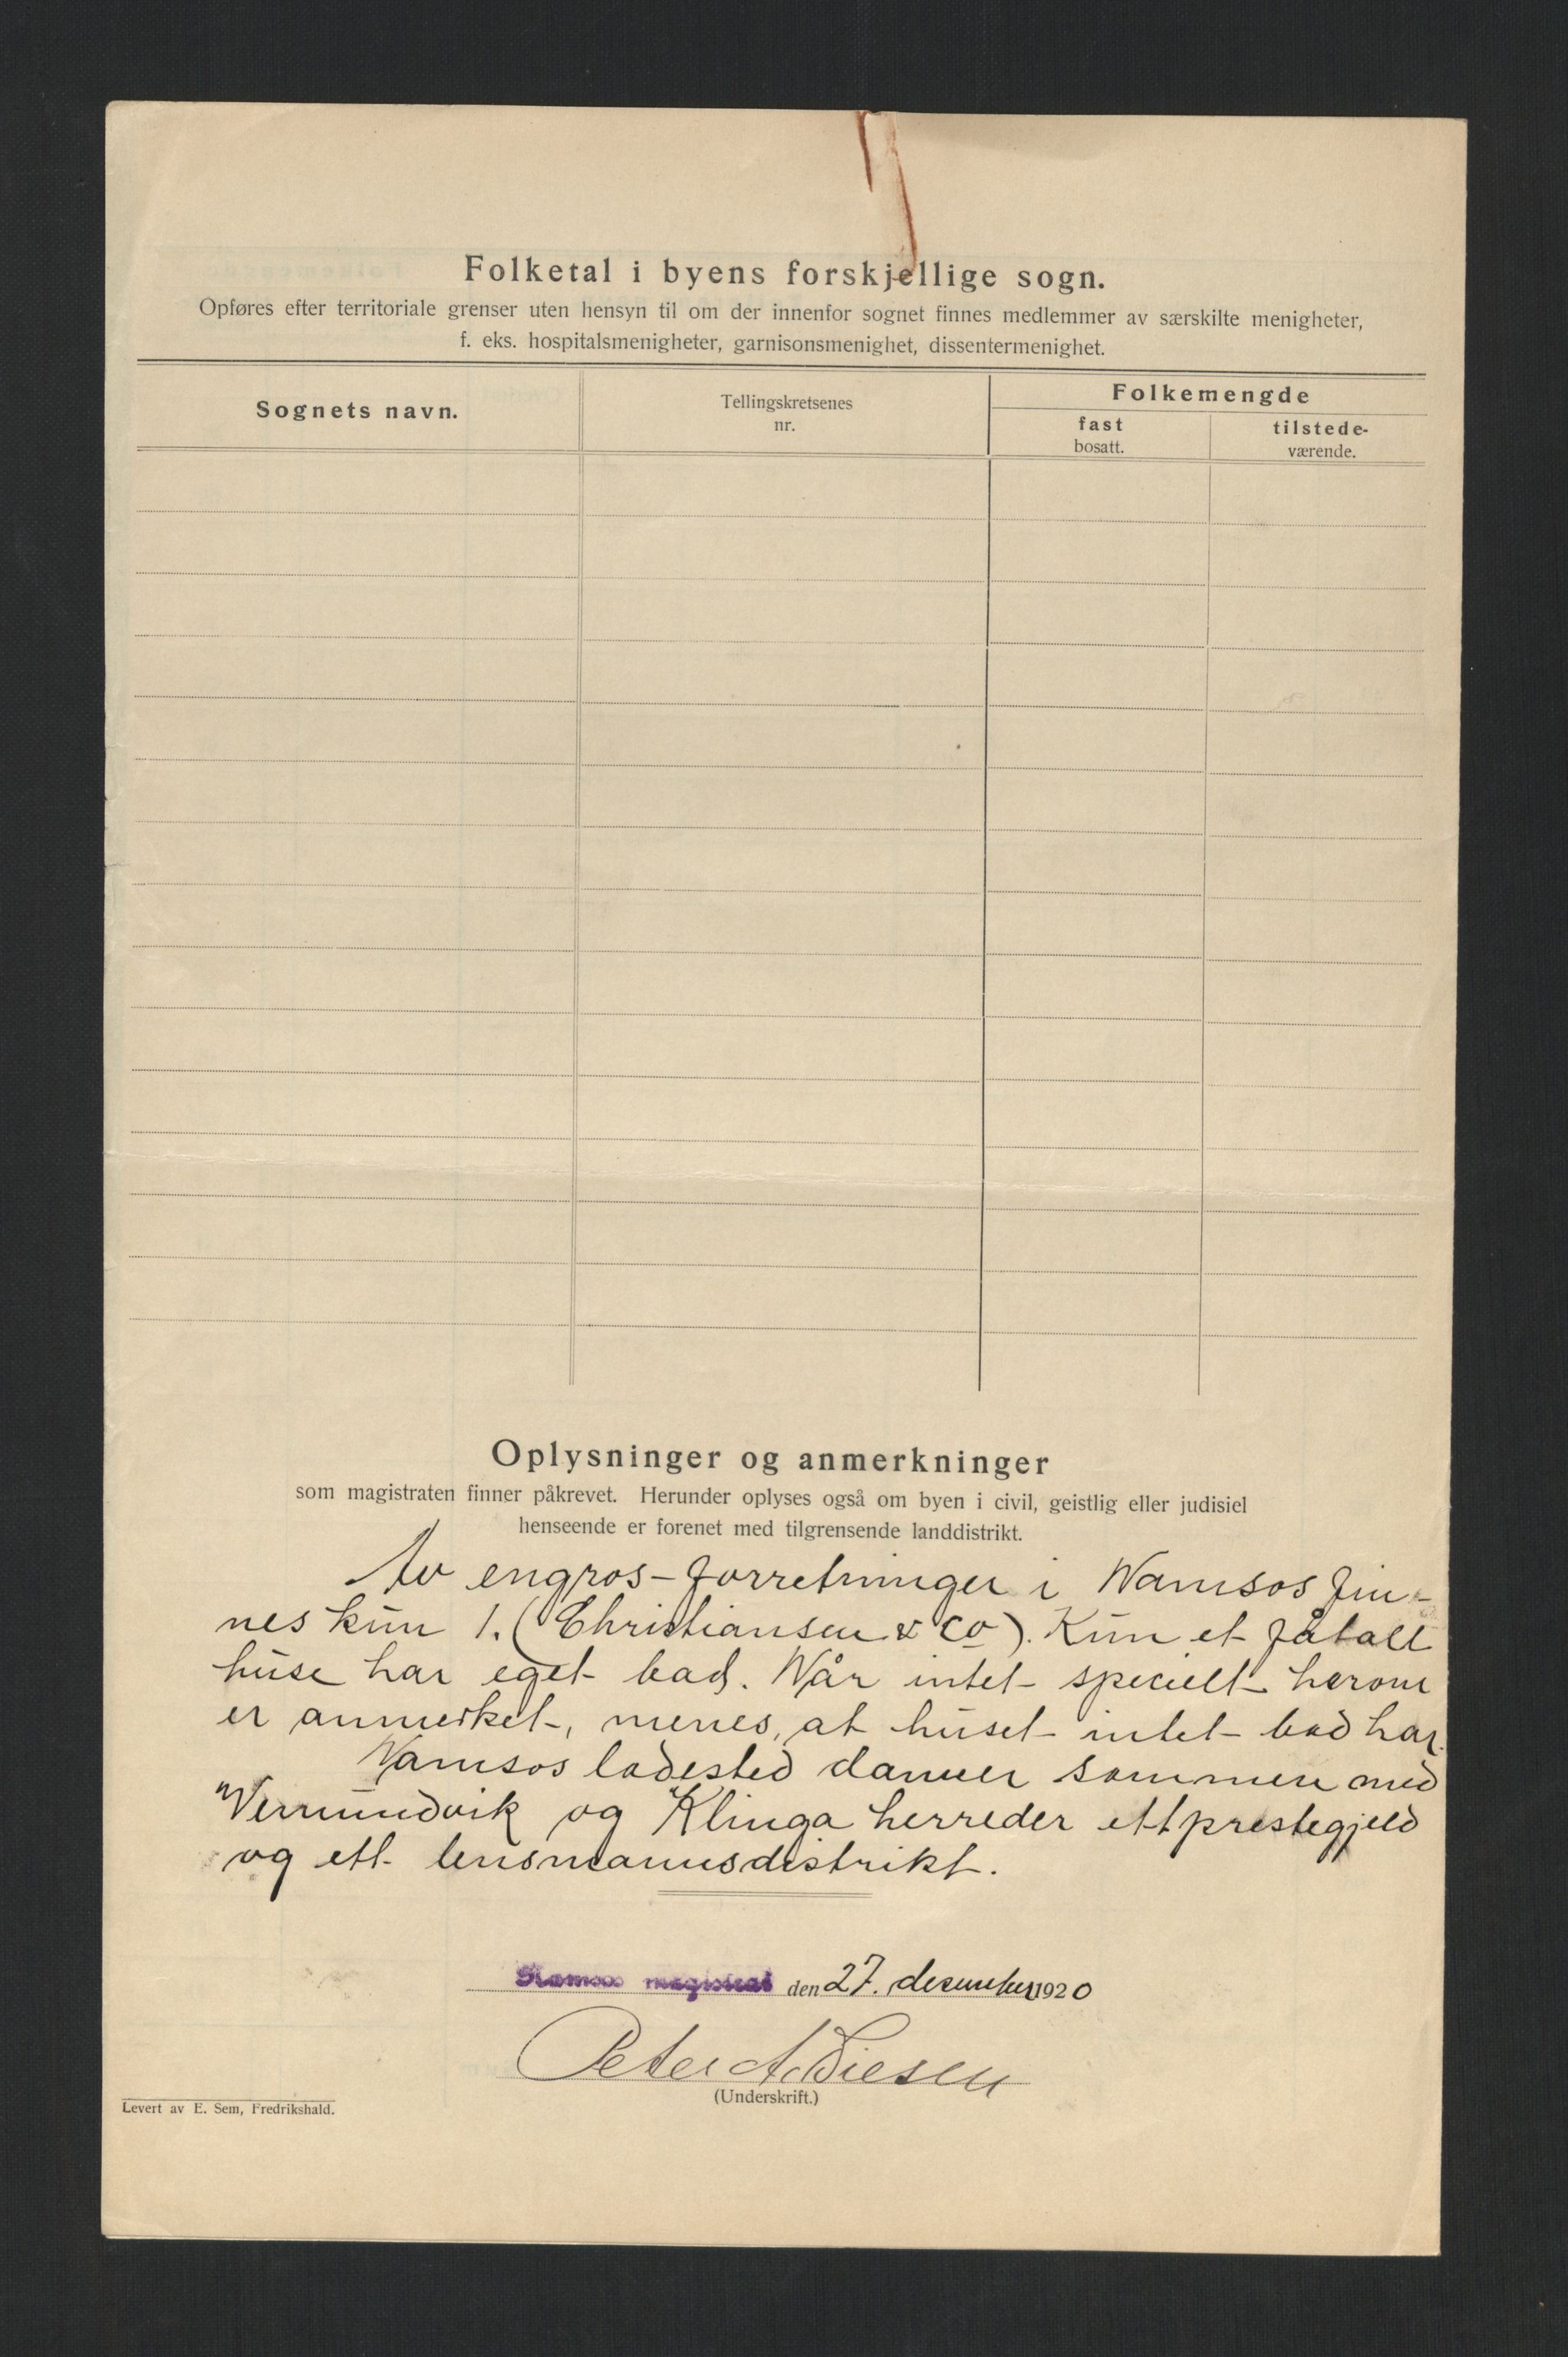 Folketal i byens forskjellige sogn.
Opføres efter territoriale grenser uten hensyn til om der innenfor sognet finnes medlemmer av særskilte menigheter,
f. eks. hospitalsmenigheter, garnisonsmenighet, dissentermenighet.
Sognets navn.
Tellingskretsenes
nr.
Folkemengde
fast
bosatt.
tilstede-
værende.
Oplysninger og anmerkninger
som magistraten finner påkrevet. Herunder oplyses også om byen i civil, geistlig eller judisiel
henseende er forenet med tilgrensende landdistrikt.
Av engros-forretninger i Namsos fin-
nes kun 1. (Christiansen & Co). Kun et fåtall
huse har eget bad. Når intet specielt herom
er anmerket, menes, at huset intet bad har.
Namsos ladested danner sammen med
Vemundvik og Klinga herreder ett prestegjeld
og ett lensmannsdistrikt.
Namsos magistrat den 27. desember 1920
Peter A. Diesen
(Underskrift.)
Levert av E. Sem, Fredrikshald.